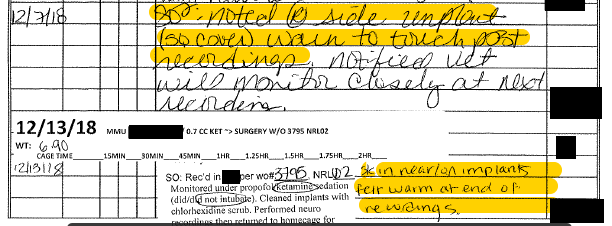 12/7/18 SO: Noted (R) side implant
(SQ cover) warm to touch post
recordings. notified vet
will monitor closely at next
recordings.
12/13/18 MMU 0.7 CC KET ~> SURGERY W/O 3795 NRL02
WT: 6.90
CAGE TIME ____15MIN ____30MIN ____45MIN ____1HR ____1.25HR ____1.5HR ____1.75HR ____2HR
12/13/18
SO: Rec'd in per wo# 3795 NRL 02
Monitored under propofol ketamine sedation
(did/did not intubate). Cleaned implants with
chlorhexidine scrub. Performed neuro
recordings then returned to homecage for
skin near/on implants
felt warm at end of
recordings.